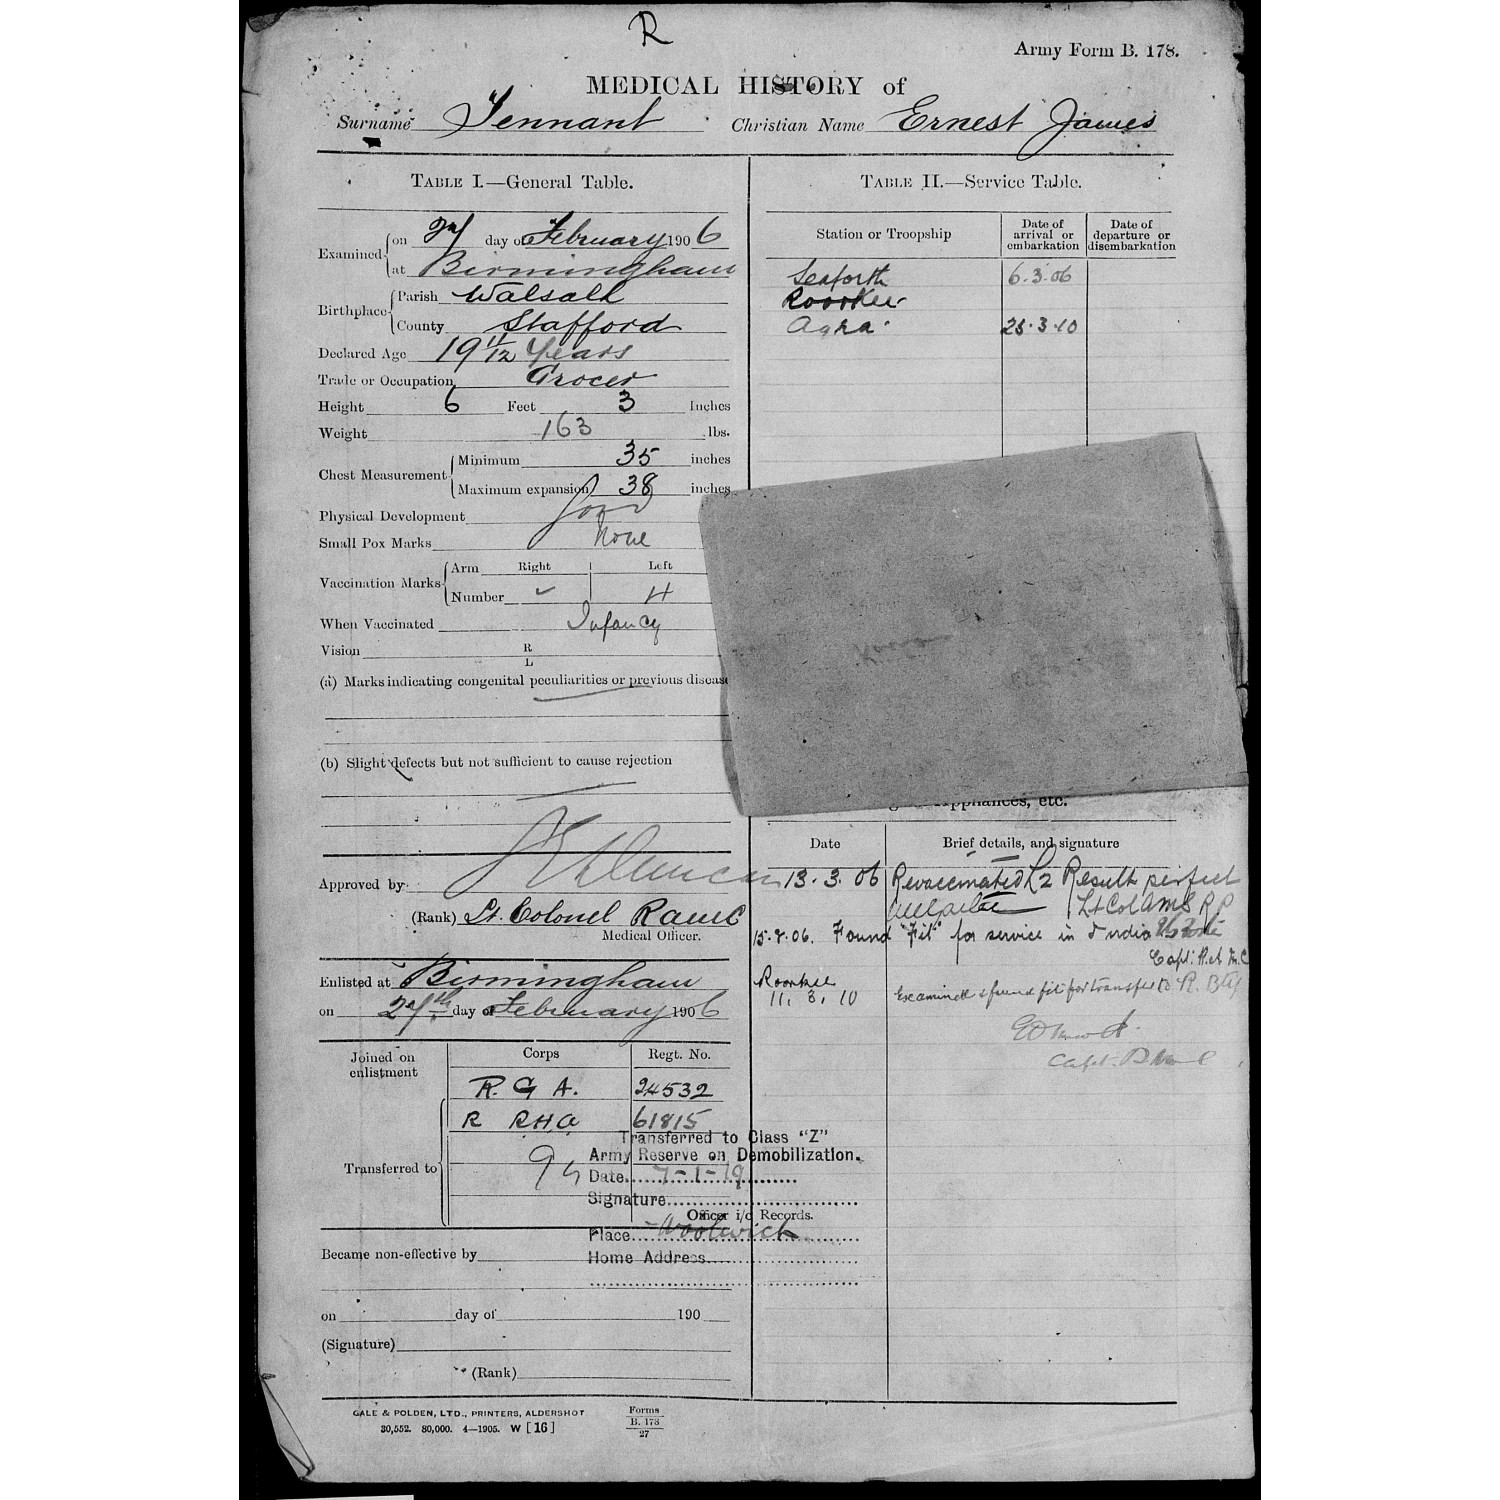 R
Army Form B. 178.
MEDICAL HISTORY of
Surname Tennant Christian Name Ernest James
TABLE I.—General Table.
Examined on 27 day of February 1906
at Birmingham
Birthplace Parish Walsall
County Stafford
Declared Age 19 11/12 Years
Trade or Occupation Grocer
Height 6 Feet 3 Inches
Weight 163 lbs.
Chest Measurement Minimum 35 inches
Maximum expansion 38 inches
Physical Development Good
Small Pox Marks None
Vaccination Marks Arm Right Left
Number 4
When Vaccinated Infancy
Vision R
L
(a) Marks indicating congenital peculiarities or previous disease
(b) Slight defects but not sufficient to cause rejection
Approved by
(Rank) Lt. Colonel RAMC
Medical Officer.
Enlisted at Birmingham
on 27th day of February 1906
Joined on enlistment
Corps Regt. No.
R. G A. 24532
R RHA 61815
Transferred to
Transferred to Class "Z"
Army Reserve on Demobilization.
Date 7-1-19
Signature
Officer i/c Records.
Place Woolwich
Home Address
Became non-effective by
on day of 190
(Signature)
(Rank)
TABLE II.—Service Table.
Station or Troopship
Date of arrival or embarkation
Date of departure or disembarkation
Seaforth 6.3.06
Roorkee
Agra 28.3.10
Appliances, etc.
Date Brief details, and signature
13.3.06 Revaccinated L2 Result perfect
Lt Col AMS RP
15.7.06. Found "Fit" for service in India
Capt: R.A.M.C
Roorkee
11.3.10 Examined & found fit for transfer to R.
Capt.
GALE & POLDEN, LTD., PRINTERS, ALDERSHOT
30,552. 80,000. 4—1905. W [16]
Forms
B. 178
27